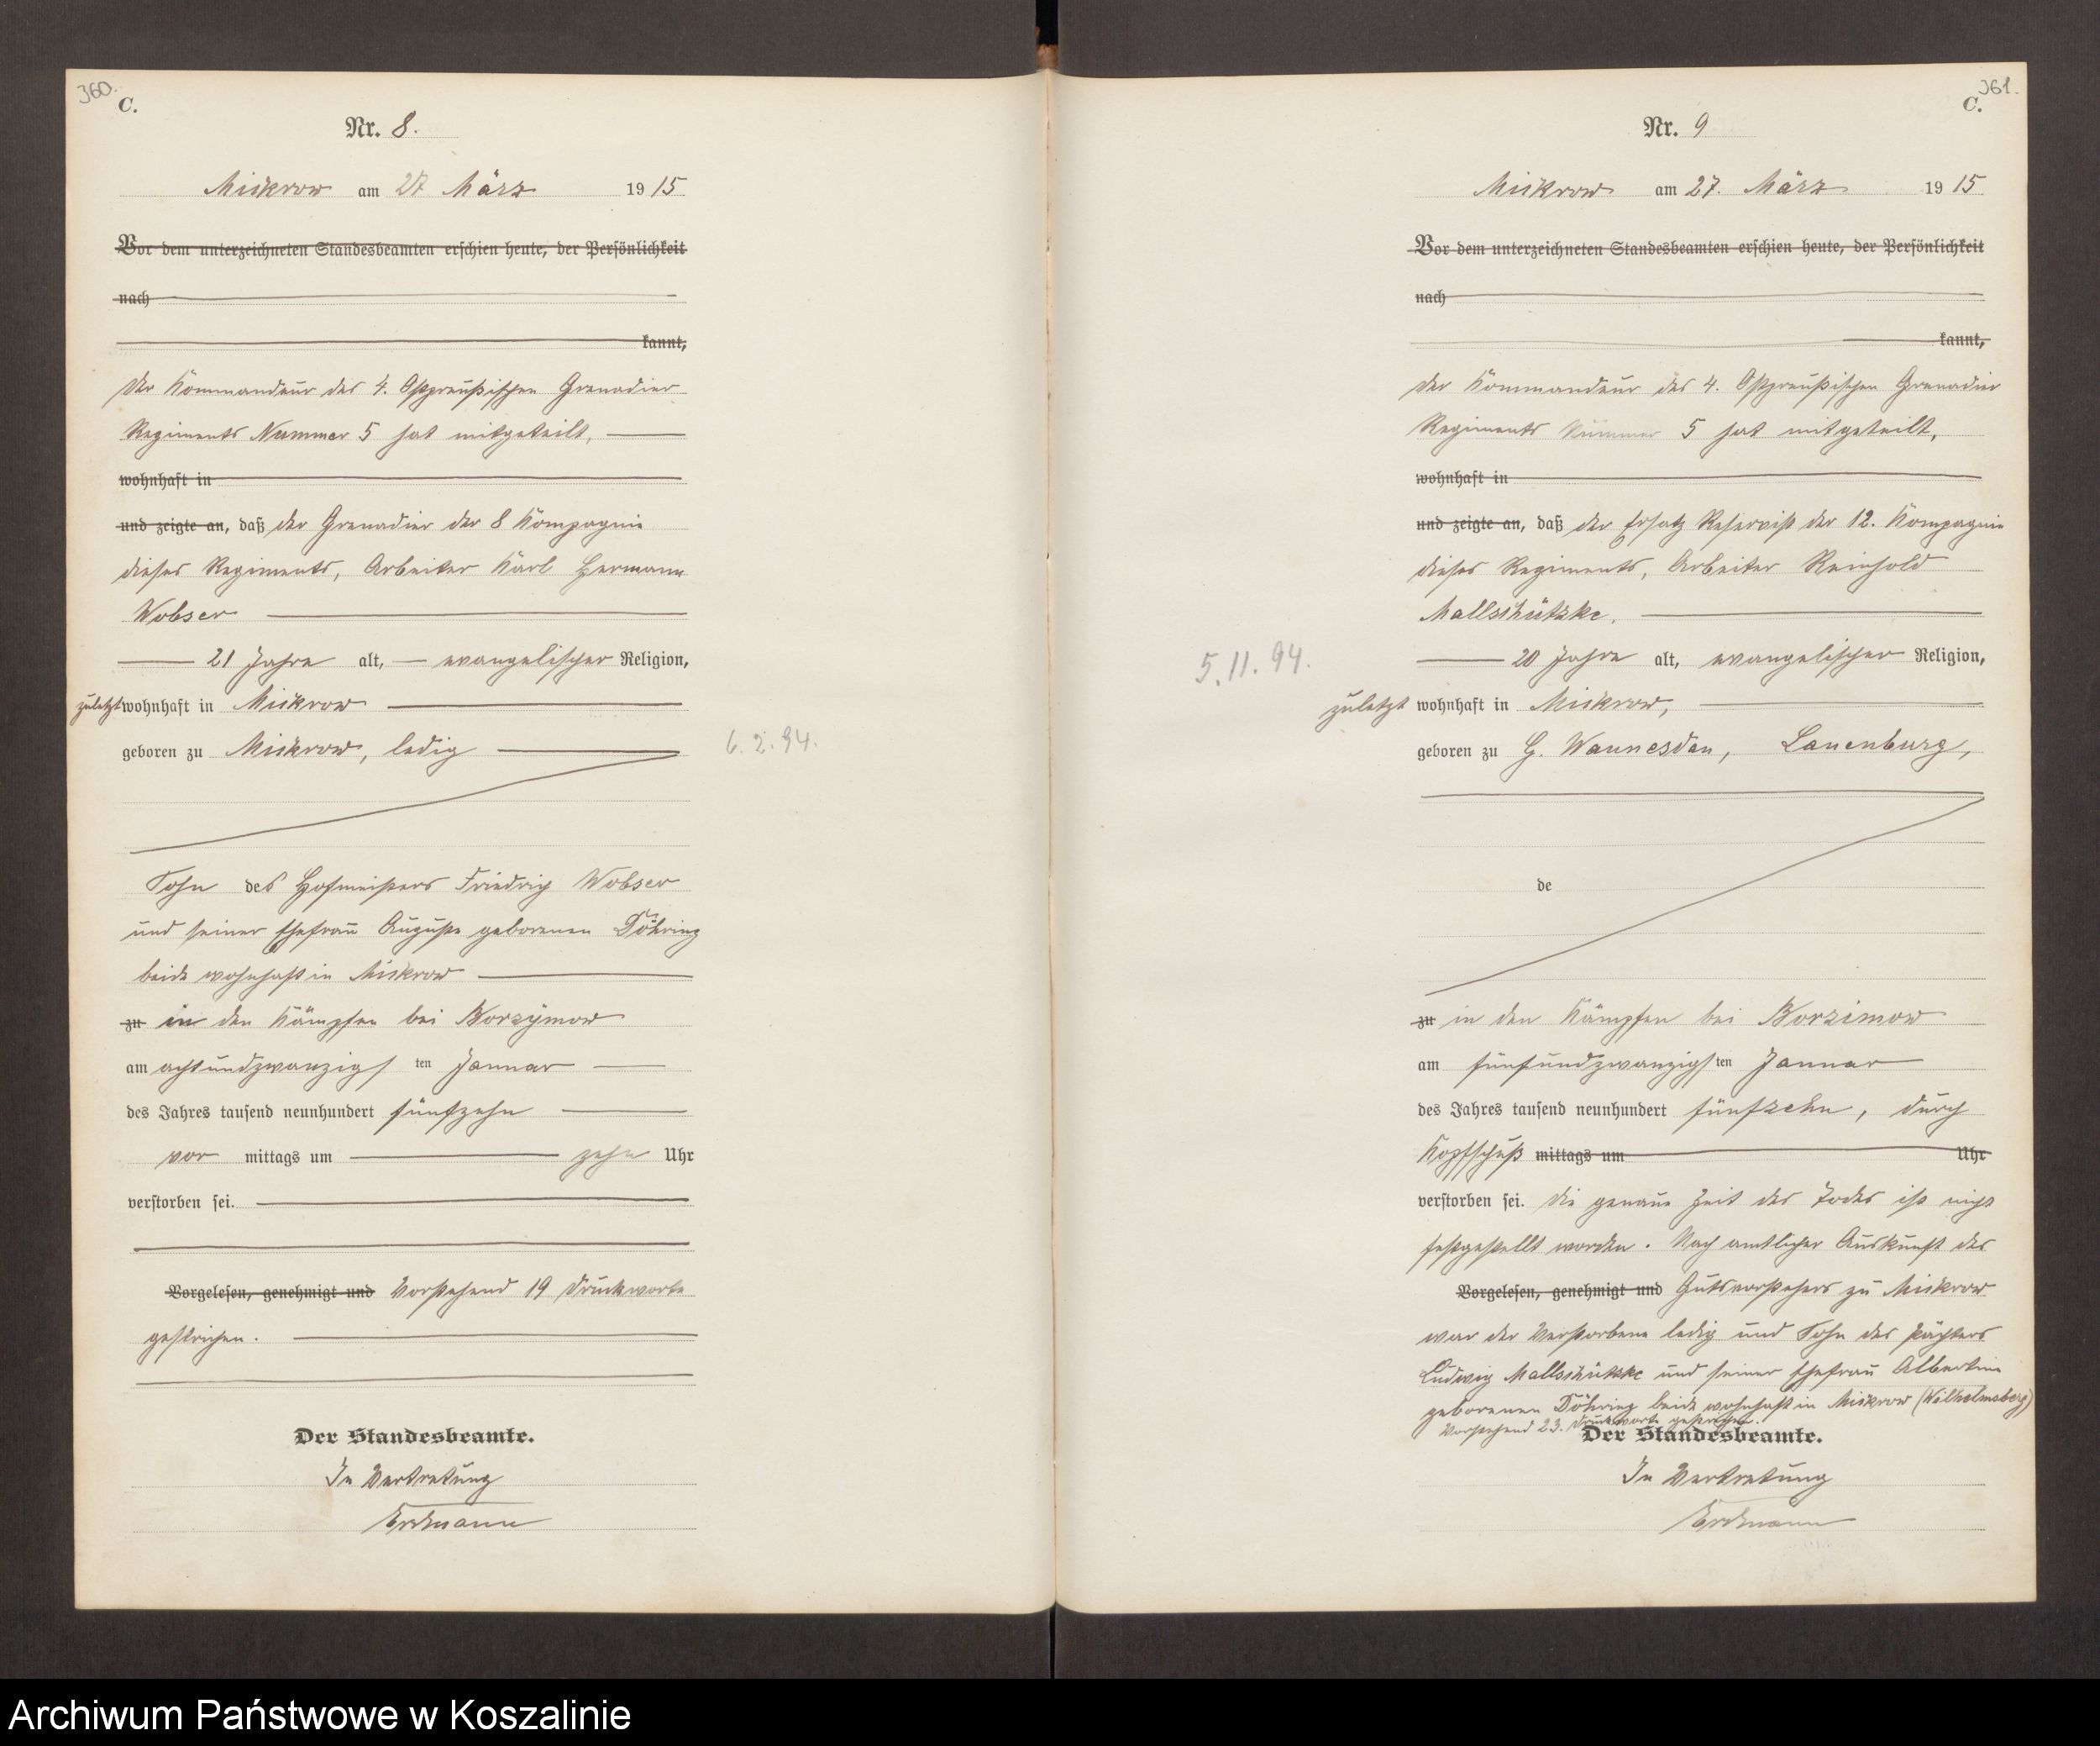 360.
C.
Nr. 8.
Mickrow am 27 März 1915
Vor dem unterzeichneten Standesbeamten erschien heute, der Persönlichkeit
nach
kannt,
Der Kommandeur des 4. Ostpreußischen Grenadier
Regiments Nummer 5 hat mitgeteilt,
wohnhaft in
und zeigte an, daß der Grenadier der 8 Kompagnie
dieses Regiments, Arbeiter Karl Hermann
Wobser
21 Jahre alt, evangelischer Religion,
zuletzt wohnhaft in Mickrow
geboren zu Mickrow, ledig
6. 2. 94.
Sohn des Hofmeisters Friedrig Wobser
und seiner Ehefrau Auguste geborenen Döhring
beide wohnhaft in Mickrow
zu in den Kämpfen bei Borzymow
am achtundzwanzigsten Januar
des Jahres tausend neunhundert fünfzehn
vor mittags um zehn Uhr
verstorben sei.
Vorgelesen, genehmigt und Vorstehend 19 Druckworte
gestrichen.
Der Standesbeamte.
In Vertretung
Erdmann
361.
C.
Nr. 9
Mickrow am 27. März 1915
Vor dem unterzeichneten Standesbeamten erschien heute, der Persönlichkeit
nach
kannt,
Der Kommandeur des 4. Ostpreußischen Grenadier
Regiments Nummer 5 hat mitgeteilt,
wohnhaft in
und zeigte an, daß der Ersatz Reservist der 12. Kompagnie
dieses Regiments, Arbeiter Reinhold
Mallschützke,
20 Jahre alt, evangelischer Religion,
5. 11. 94.
zuletzt wohnhaft in Mickrow,
geboren zu G. Wunnesdau, Lauenburg,
de
zu in den Kämpfen bei Borzimow
am fünfundzwanzigsten Januar
des Jahres tausend neunhundert fünfzehn, durch
Kopfschuß mittags um Uhr
verstorben sei. Die genaue Zeit des Todes ist nicht
festgestellt worden. Nach amtlicher Auskunft des
Vorgelesen, genehmigt und Gutsvorstehers zu Mickrow
war der Verstorbene ledig und Sohn des Pächters
Ludwig Mallschützke und seiner Ehefrau Albertine
geborenen Döhring beide wohnhaft in Mickrow (Wilhelmsberg)
Vorstehend 23. Druckworte gestrichen.
Der Standesbeamte.
In Vertretung
Erdmann
Archiwum Państwowe w Koszalinie